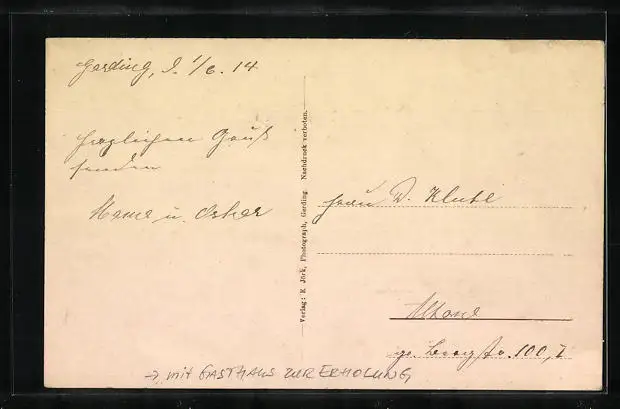 Garding, d. 1/6. 14
Herzlichen Gruß
senden
Mame u. Oskar
Verlag: K. Jörk, Photograph, Garding. Nachdruck verboten.
Frau D.
Altona
gr. Bergstr. 100, I
→ mit GASTHAUS ZUR ERHOLUNG